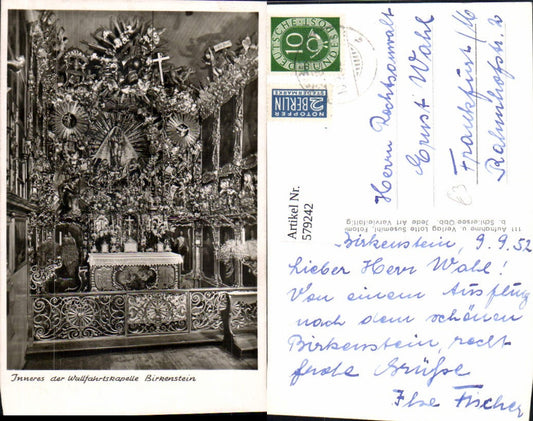 Inneres der Wallfahrtskapelle Birkenstein
DEUTSCHE BUNDESPOST
10
NOTOPFER
2 BERLIN
STEUERMARKE
Herrn Rechtsanwalt
Ernst Wahl
Frankfurt/M
Artikel Nr.
579242
111 Aufnahme u. Verlag Lotte Susemihl, Fotom.
b. Schliersee-Obb. Jede Art Vervielfältig.
Birkenstein, 9.9.52
Lieber Herr Wahl!
Von einem Ausflug
nach dem schönen
Birkenstein, recht
frohe Grüße
Ilse Fischer